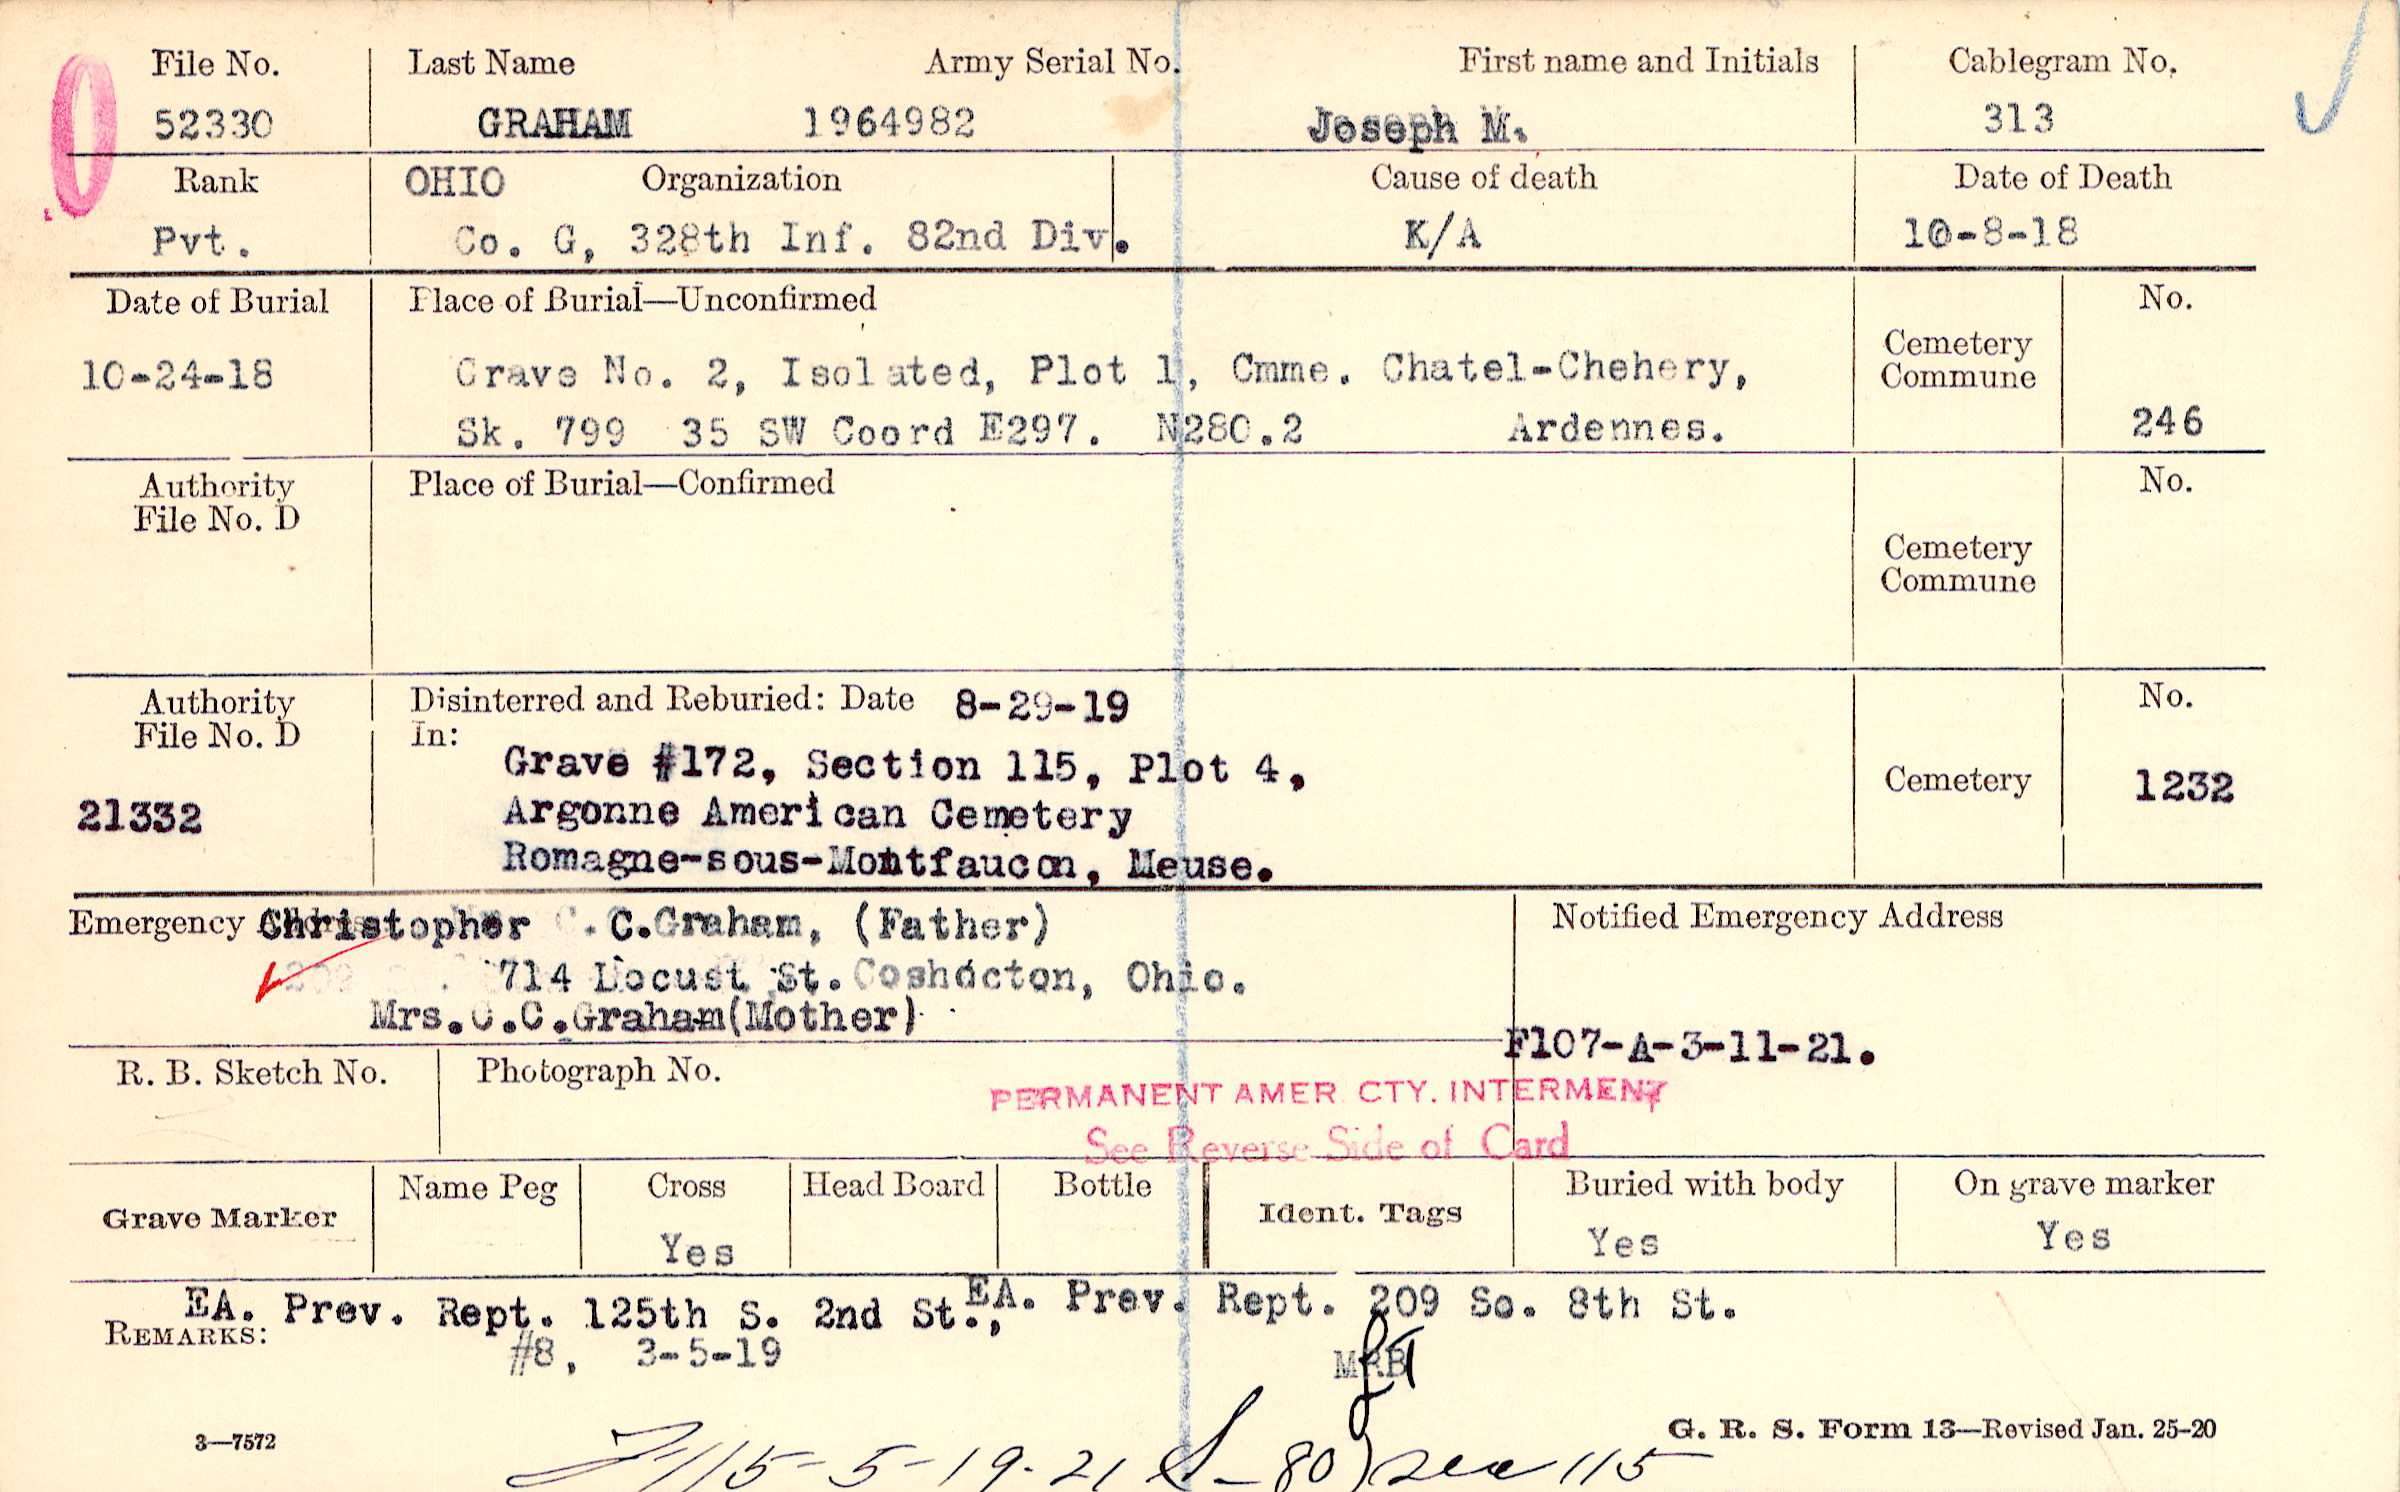 File No. Last Name Army Serial No. First name and Initials Cablegram No.
52330 GRAHAM 1964982 Joseph M. 313
Rank OHIO Organization Cause of death Date of Death
Pvt. Co. G, 328th Inf. 82nd Div. K/A 10-8-18
Date of Burial Place of Burial—Unconfirmed No.
10-24-18 Grave No. 2, Isolated, Plot 1, Cmme. Chatel-Chehery, Cemetery
Commune
Sk. 799 35 SW Coord E297. N280.2 Ardennes. 246
Authority Place of Burial—Confirmed No.
File No. D
Cemetery
Commune
Authority Disinterred and Reburied: Date 8-29-19 No.
File No. D In:
Grave #172, Section 115, Plot 4, Cemetery 1232
21332 Argonne American Cemetery
Romagne-sous-Montfaucon, Meuse.
Emergency Christopher C.Graham, (Father) Notified Emergency Address
714 Locust St. Coshocton, Ohio.
Mrs.C.C.Graham(Mother)
F107-A-3-11-21.
R. B. Sketch No. Photograph No.
PERMANENT AMER. CTY. INTERMENT
See Reverse Side of Card
Grave Marker Name Peg Cross Head Board Bottle Ident. Tags Buried with body On grave marker
Yes Yes Yes
EA. Prev. Rept. 125th S. 2nd St., EA. Prev. Rept. 209 So. 8th St.
REMARKS:
#8, 3-5-19 MRB
3—7572 G. R. S. Form 13—Revised Jan. 25-20
115-5-19-21 80 sec 115